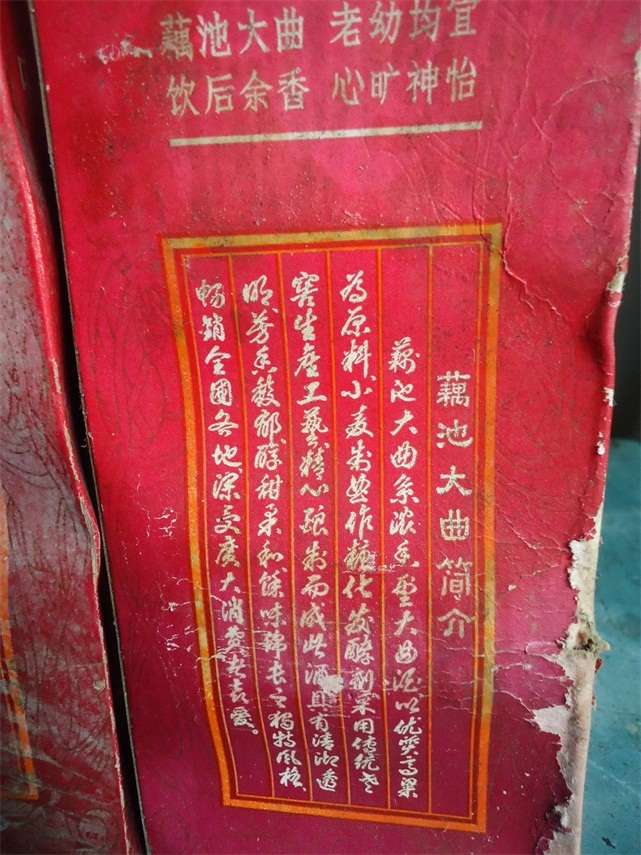 藕池大曲 老幼均宜
饮后余香 心旷神怡
藕池大曲简介
藕池大曲系浓香型大曲酒以优质高粱
为原料小麦制曲作糖化发酵剂采用传统老
窖生产工艺精心酿制而成此酒具有清澈透
明芳香馥郁醇甜柔和余味绵长之独特风格
畅销全国各地深受广大消费者喜爱。